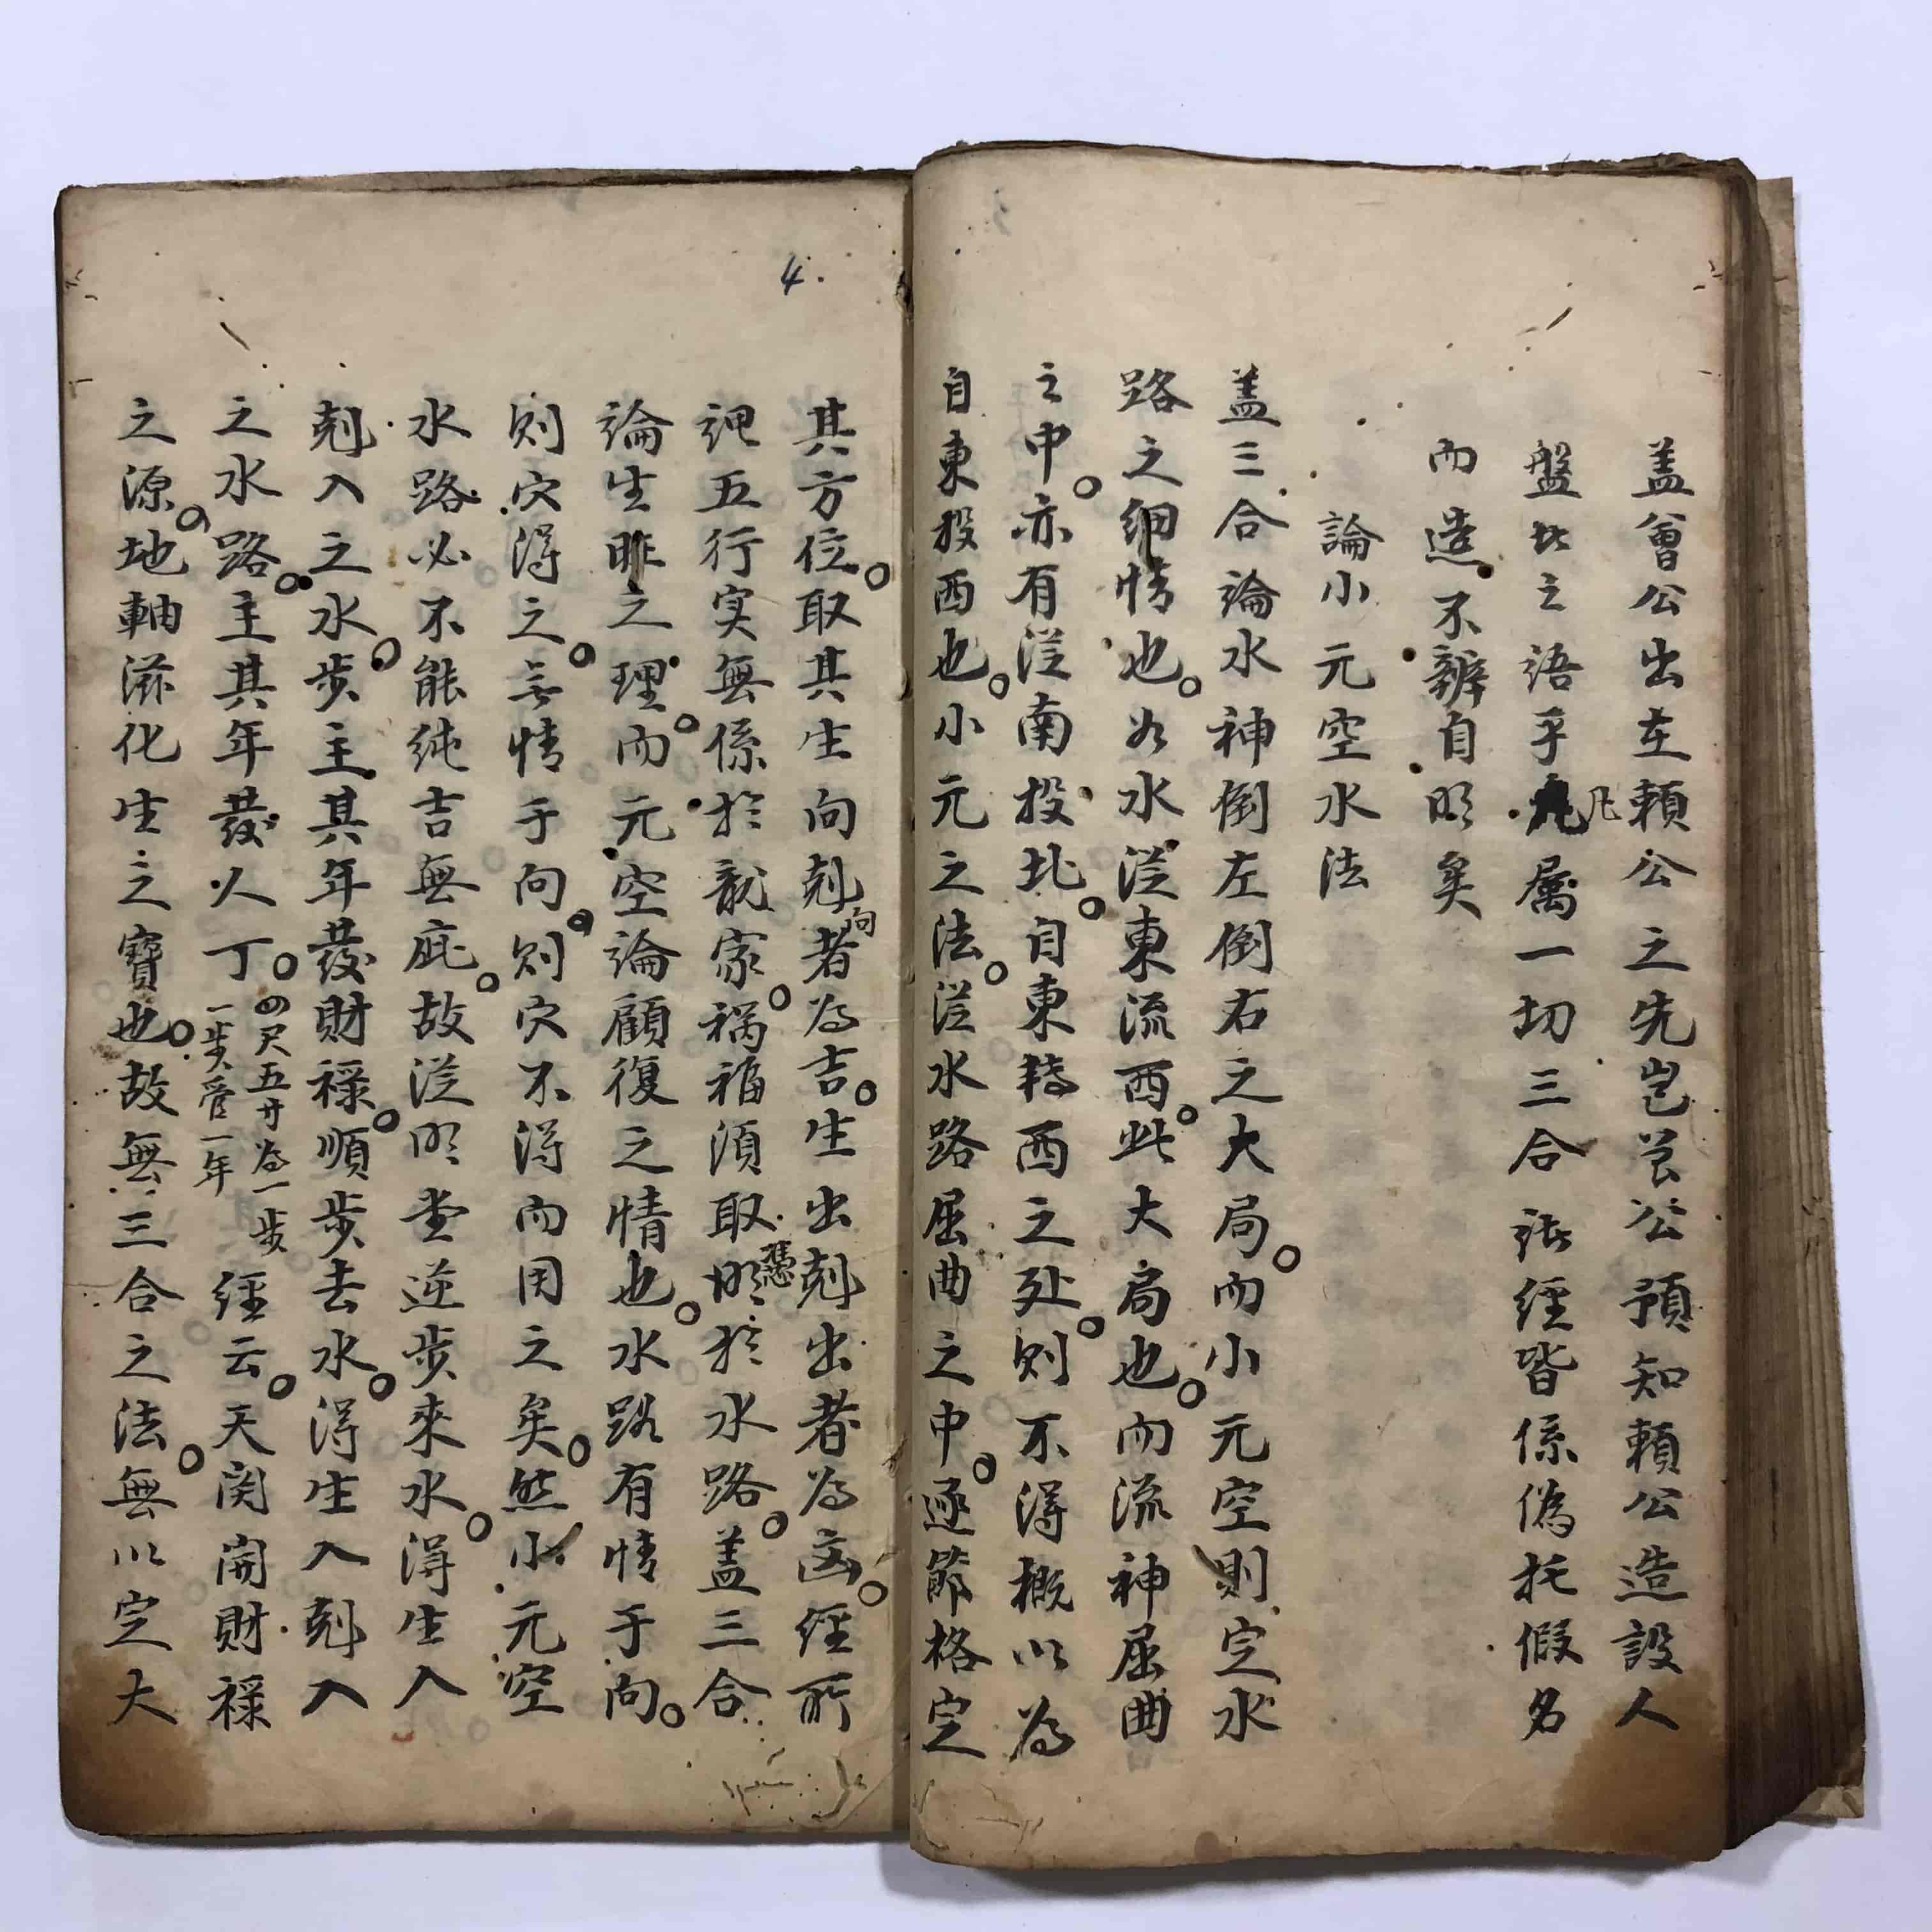 盖曾公出在賴公之先豈曾公預知賴公造設人
盤比之語乎凡属一切三合諸經皆係偽托假名
而造不辨自明矣
論小元空水法
盖三合論水神倒左倒右之大局而小元空則定水
路之細情也如水從東流西此大局也而流神屈曲
之中亦有從南投北自東轉西之处則不得概以為
自東投西也小元之法從水路屈曲之中逐節格定
4.
其方位取其生向剋向者為吉生出剋出者為凶經所
謂五行实無係於龍家禍福須取明憑於水路盖三合
論生旺之理而元空論顧復之情也水路有情于向
則穴得之無情于向則穴不得而用之矣然小元空
水路必不能純吉無疵故從明堂逆步來水得生入
剋入之水步主其年發財祿順步去水得生入剋入
之水路主其年發人丁
四尺五寸為一步
一步管一年
經云天関開財祿
之源地軸滋化生之寶也故無三合之法無以定大